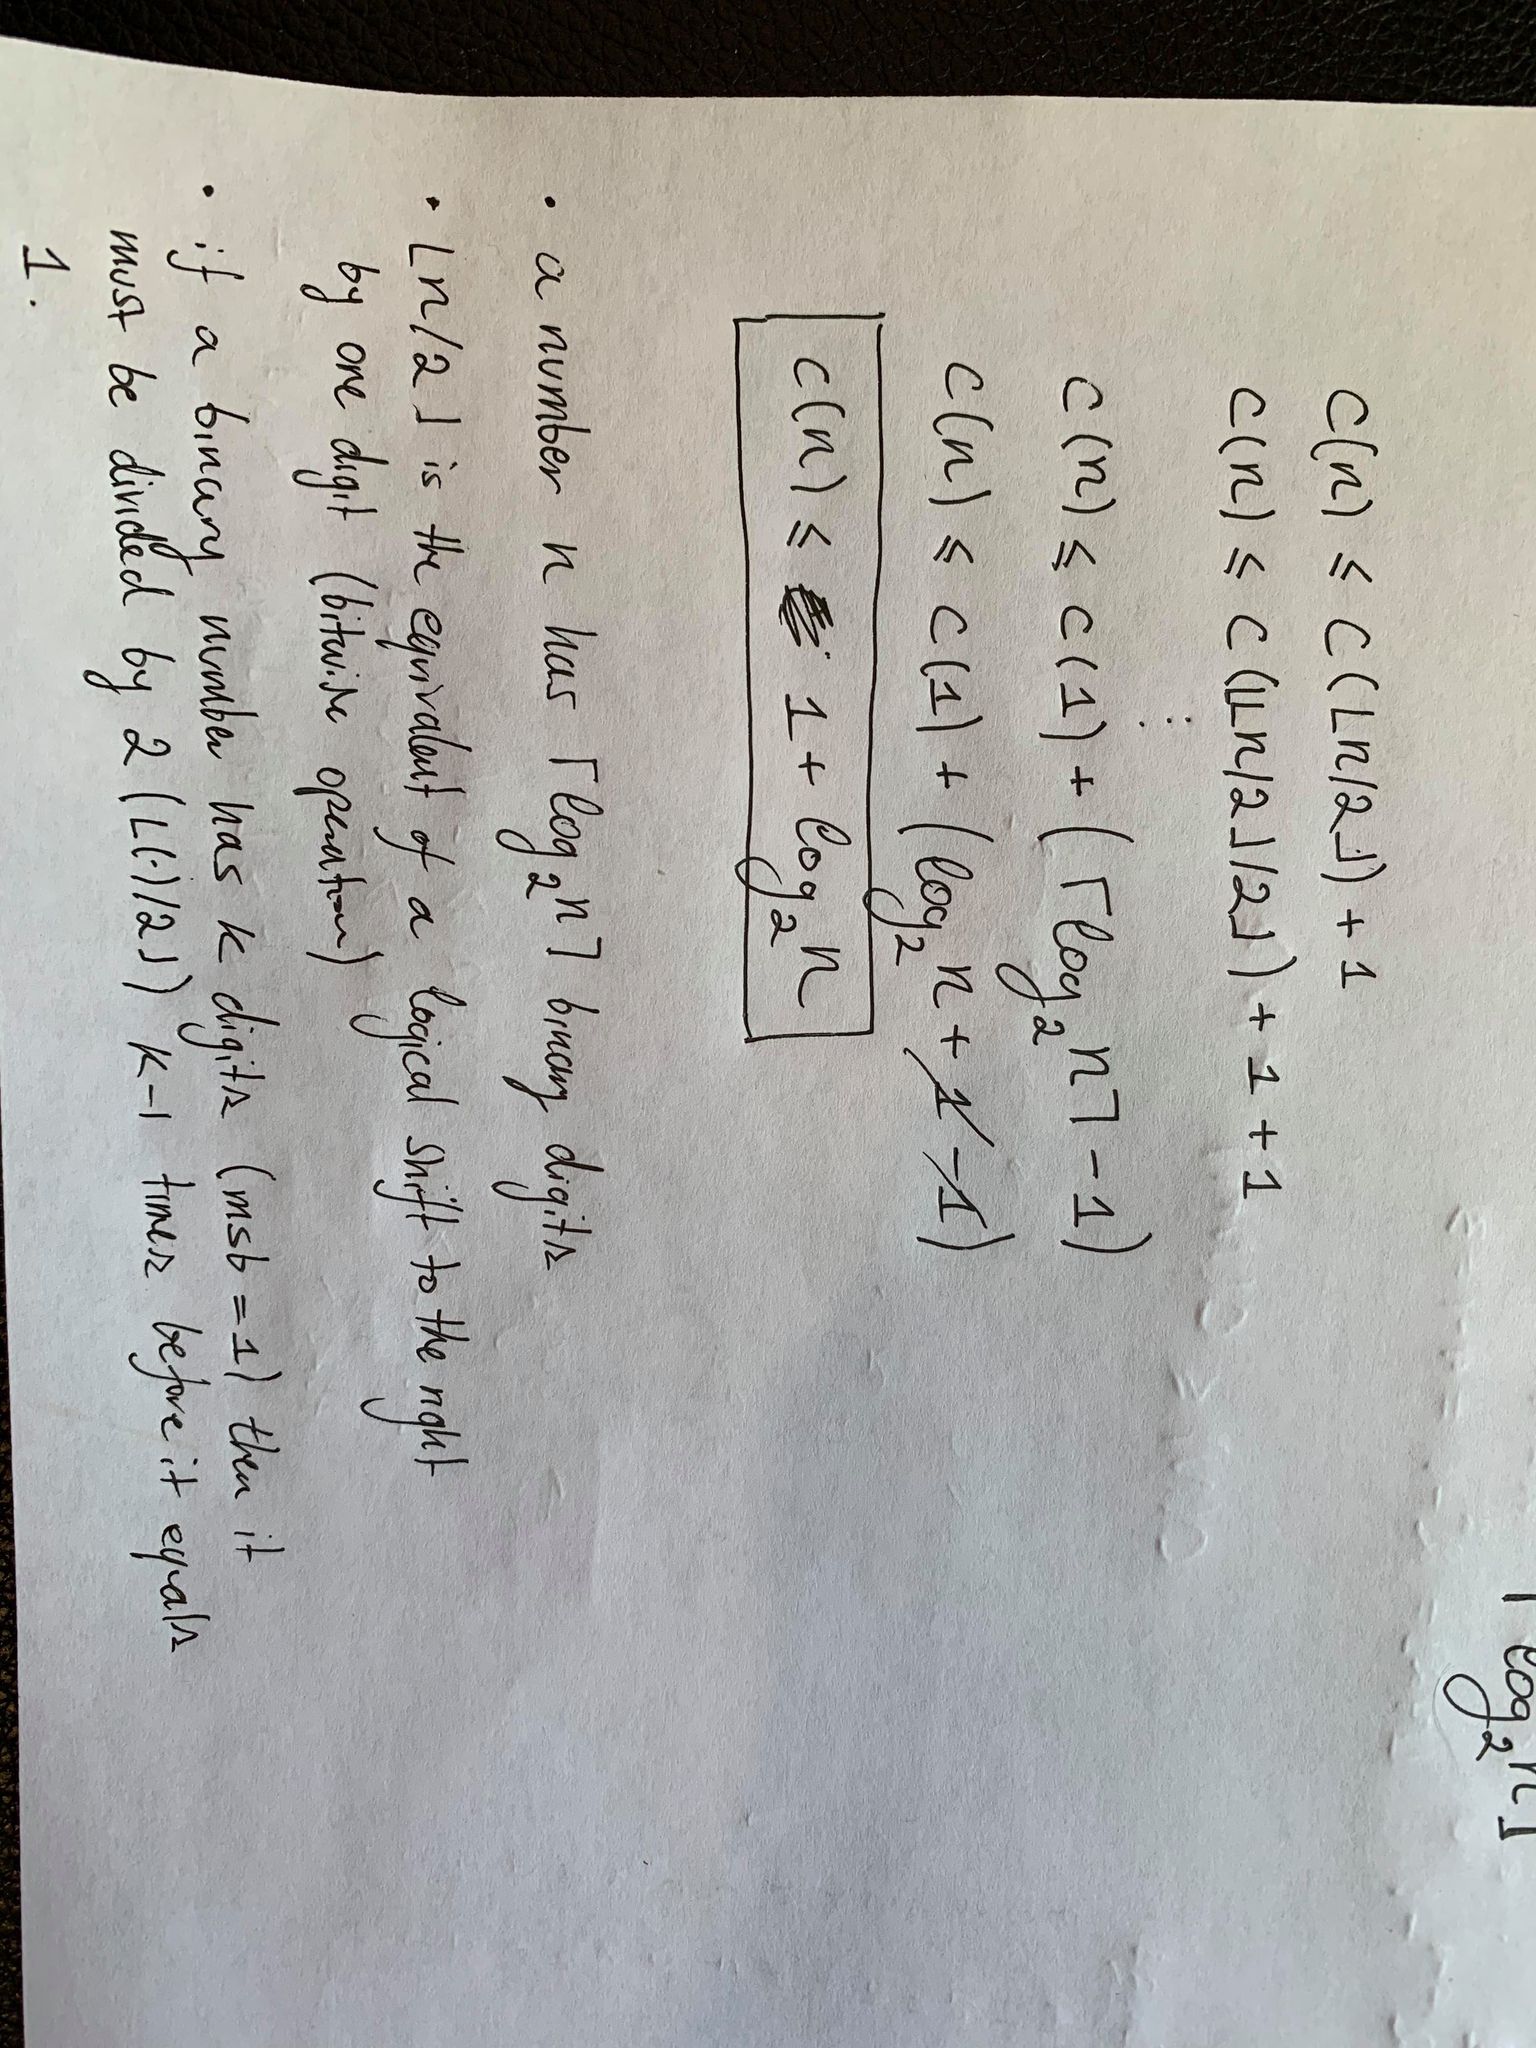 ⌈log₂n⌋
C(n) ≤ C(⌊n/2⌋) + 1
C(n) ≤ C(⌊⌊n/2⌋/2⌋) + 1 + 1
⋮
C(n) ≤ C(1) + (⌈log₂n⌉ - 1)
C(n) ≤ C(1) + (log₂n + 1 - 1)
C(n) ≤ 1 + log₂n
• a number n has ⌈log₂n⌉ binary digits
• ⌊n/2⌋ is the equivalent of a logical shift to the right
by one digit (bitwise operation)
• if a binary number has k digits (msb = 1) then it
must be divided by 2 (⌊(·)/2⌋) k-1 times before it equals
1.